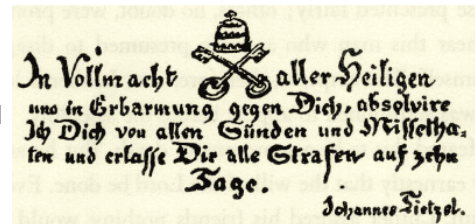 In Vollmacht aller Heiligen
und in Erbarmung gegen Dich, absolvire
Ich Dich von allen Sünden und Misselha-
ten und erlasse Dir alle Strafen auf zehn
Tage.
Johannes Tietzel.